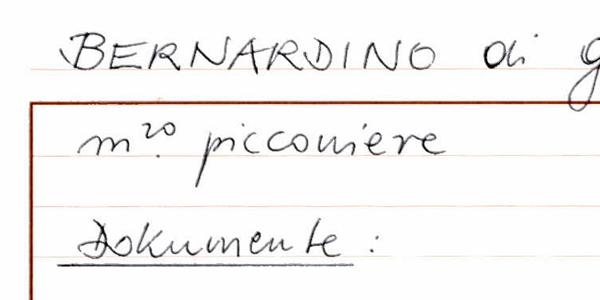 BERNARDINO di g
m.ro picconiere
Dokumente: